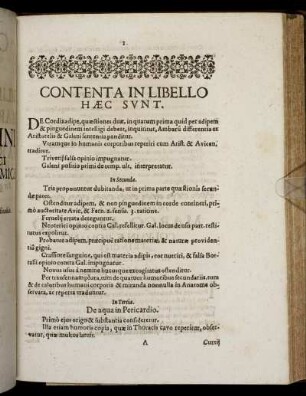 1.
CONTENTA IN LIBELLO
HÆC SVNT.
DE Cordis adipe, quæstiones duæ, in quarum prima quid per adipem
& pinguedinem intelligi debeat, inquiritur, Amborū differentia ex
Aristotelis & Galeni sententia proditur.
Vtrumque in humanis corporibus reperiri cum Arist. & Avicen.
traditur.
Triverij falsa opinio impugnatur.
Galeni positio primi de temp. ult. interpretatur.
In Secunda.
Tria proponuntur dubitanda, ut in prima parte quæstionis
parum.
Ostenditur adipem, & non pinguedinem in corde contineri, pri-
mò authoritate Avic. & Fern. 2. ratione. 3.
Fernelij arrota deteguntur.
Neoterici opinio contra Gal. refellitur. Gal. locus de usu part. resti-
tutus exponitur.
Probatur adipem, præcipuè ratione materiæ & naturæ providen-
tiâ gigni.
Crassiore sanguine, qui est materia adipis, cor nutriri, & falsa
opinio contra Gal. impugnatur.
Novus usus à nemine hucusque excogitatus ostenditur.
Per transennam quædam, tum de quatuor humoribus secundariis, tum
& de caloribus humani corporis & miranda nonnulla in Anatome ob-
servata, ac reperta traduntur.
In Tertia.
De aqua in Pericardio.
Primò ejus origo & substantia consideratur.
Illa etiam humoris copia, quæ in Thoracis cavo reperitur, obser-
vatur, quæ multos latuit.
A